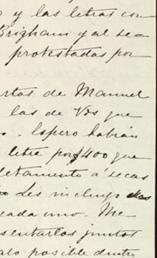 o y las letras con
Brigham y al sea
protestadas por
rtas de Manuel
las de Vos que
. Espero habián
letra por $400 que
letamente á secas
o les incluyo dos
cada uno. Me
sentarlos juntos
alo posible dentro